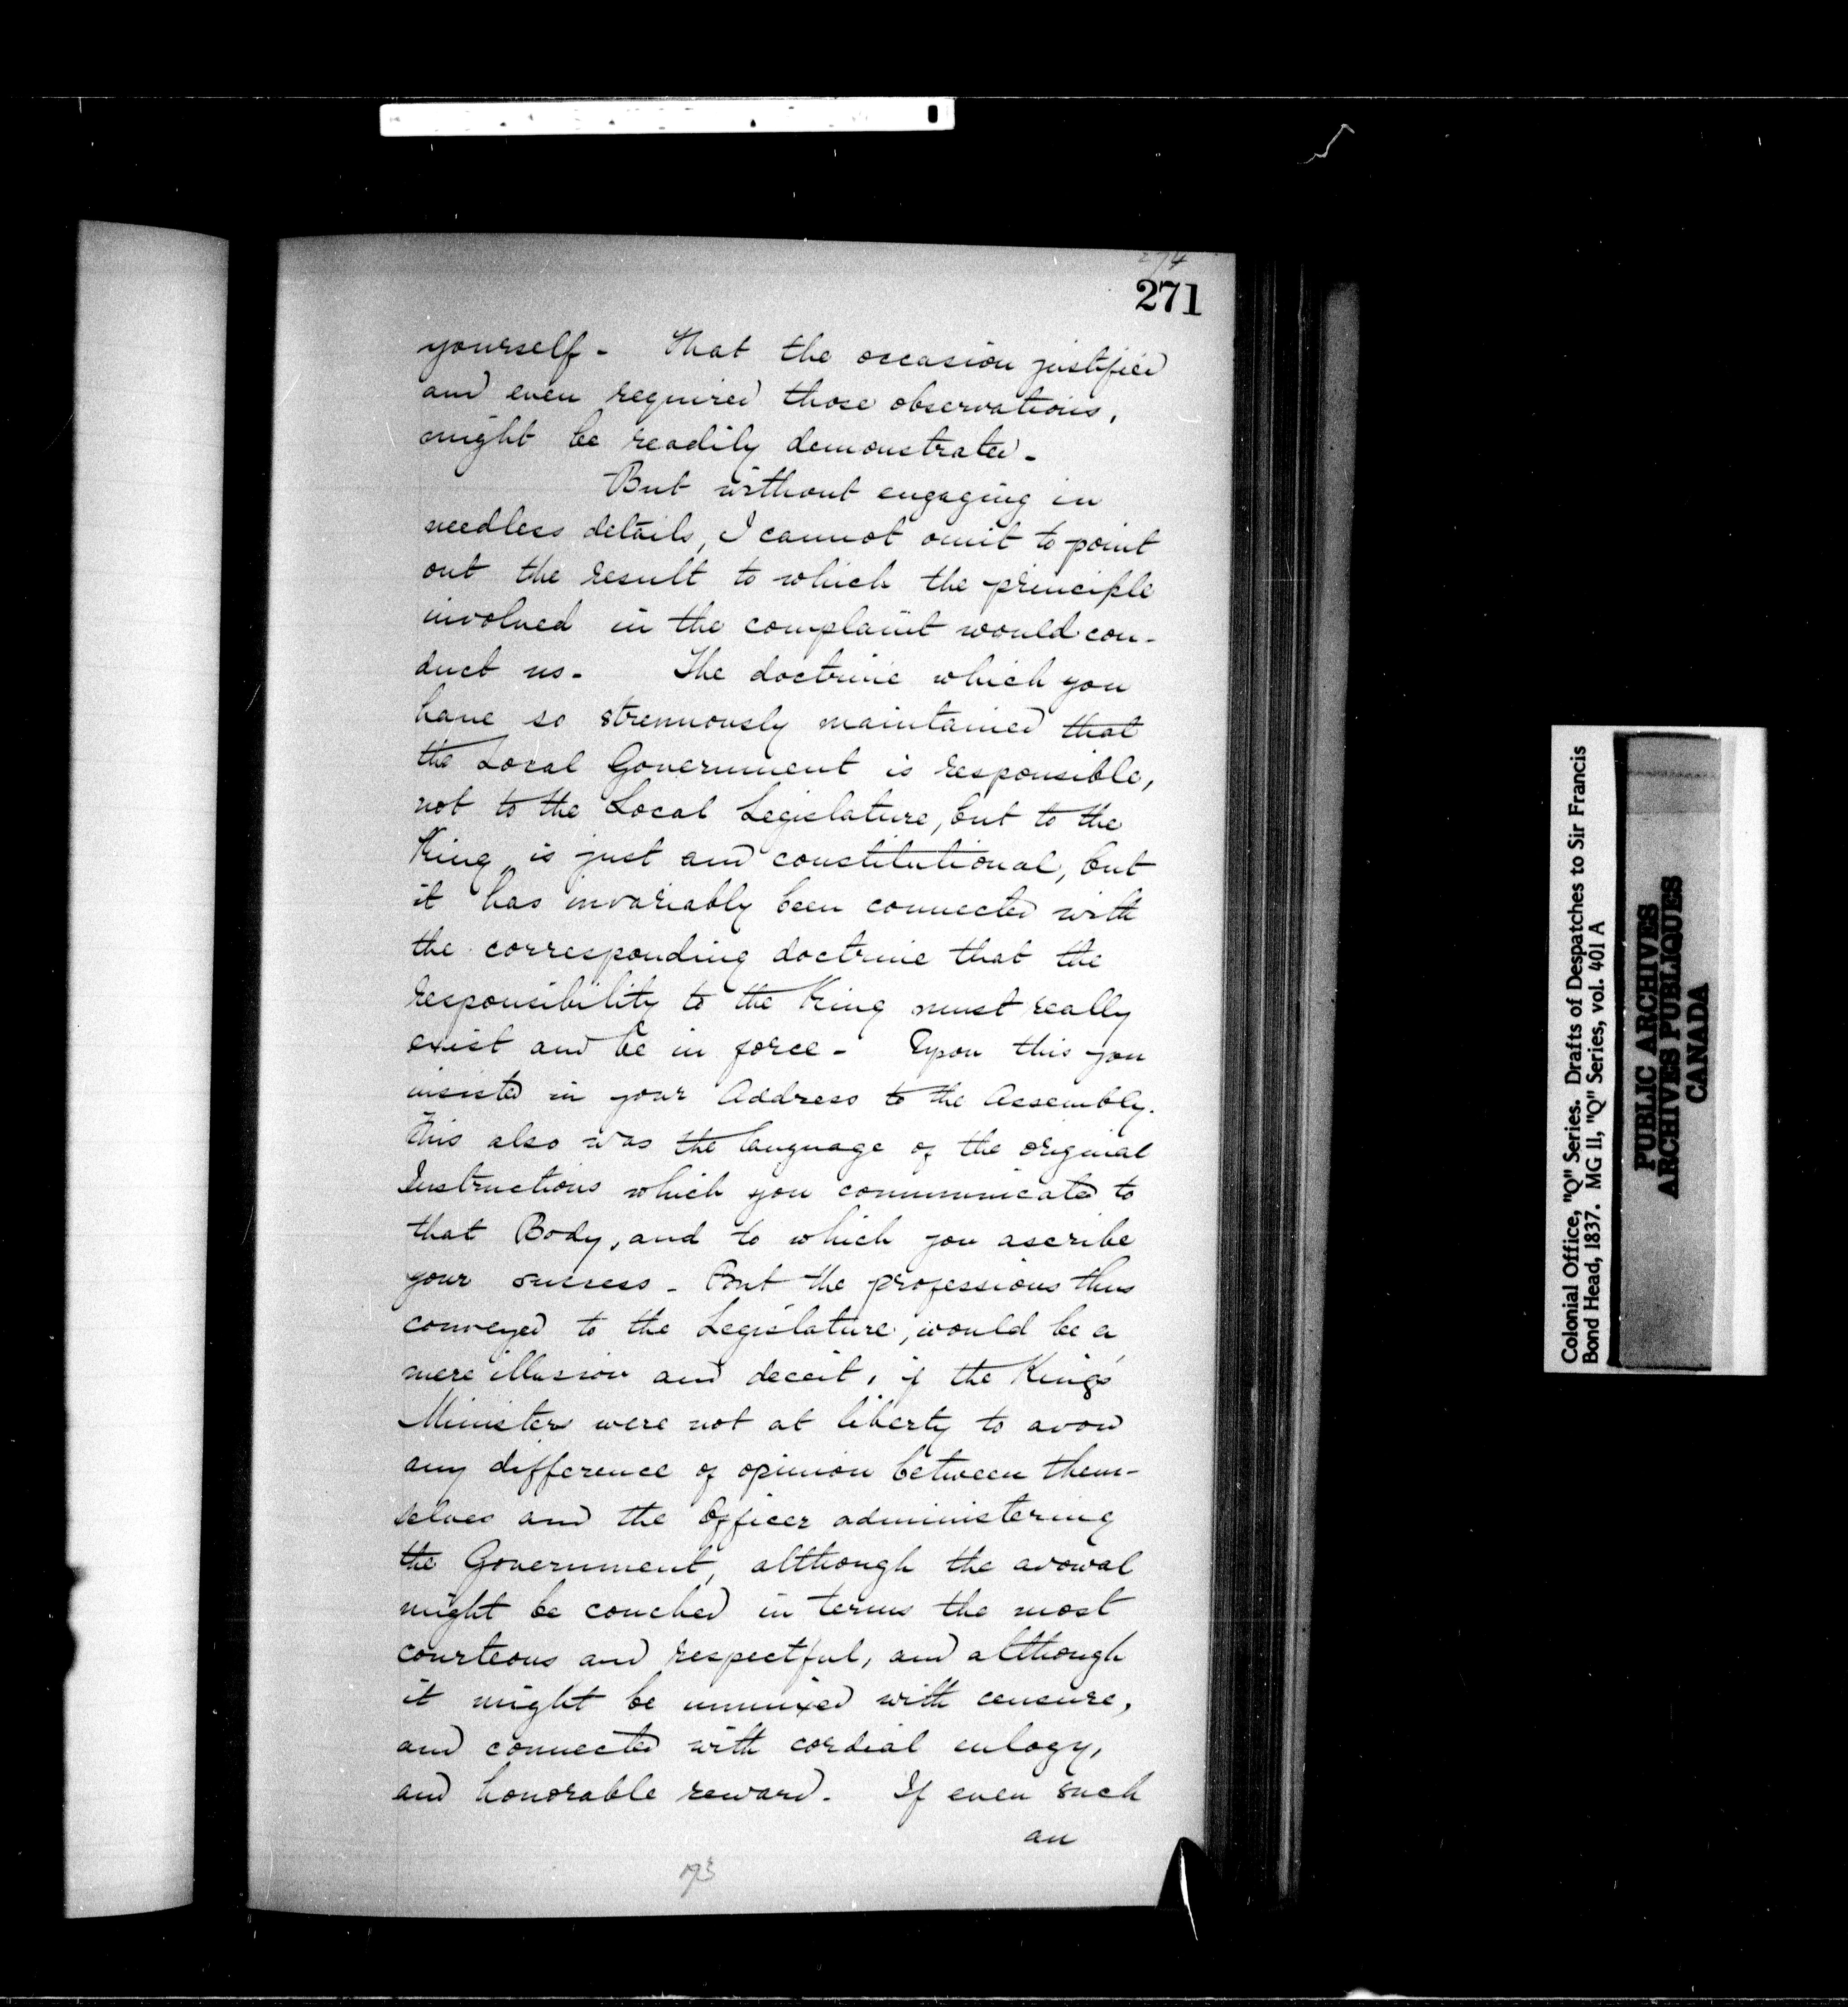 274
271
yourself - That the occasion justified
and even required those observations,
might be readily demonstrated -
But without engaging in
needless details, I cannot omit to point
out the result to which the principle
involved in the complaint would con-
duct us - The doctrine which you
have so strenuously maintained that
the Local Government is responsible,
not to the Local Legislature, but to the
King, is just and constitutional, but
it has invariably been connected with
the corresponding doctrine that the
responsibility to the King must really
exist and be in force - Upon this you
insisted in your Address to the Assembly.
This also was the language of the original
Instructions which you communicated to
that Body, and to which you ascribe
your success - But the professions thus
conveyed to the Legislature, would be a
mere illusion and deceit, if the King's
Ministers were not at liberty to avow
any difference of opinion between them-
selves and the Officer administering
the Government, although the avowal
might be couched in terms the most
courteous and respectful, and although
it might be unmixed with censure,
and connected with cordial eulogy,
and honorable reward. If even such
an
193
Colonial Office, "Q" Series. Drafts of Despatches to Sir Francis
Bond Head, 1837. MG 11, "Q" Series, vol. 401 A
PUBLIC ARCHIVES
ARCHIVES PUBLIQUES
CANADA